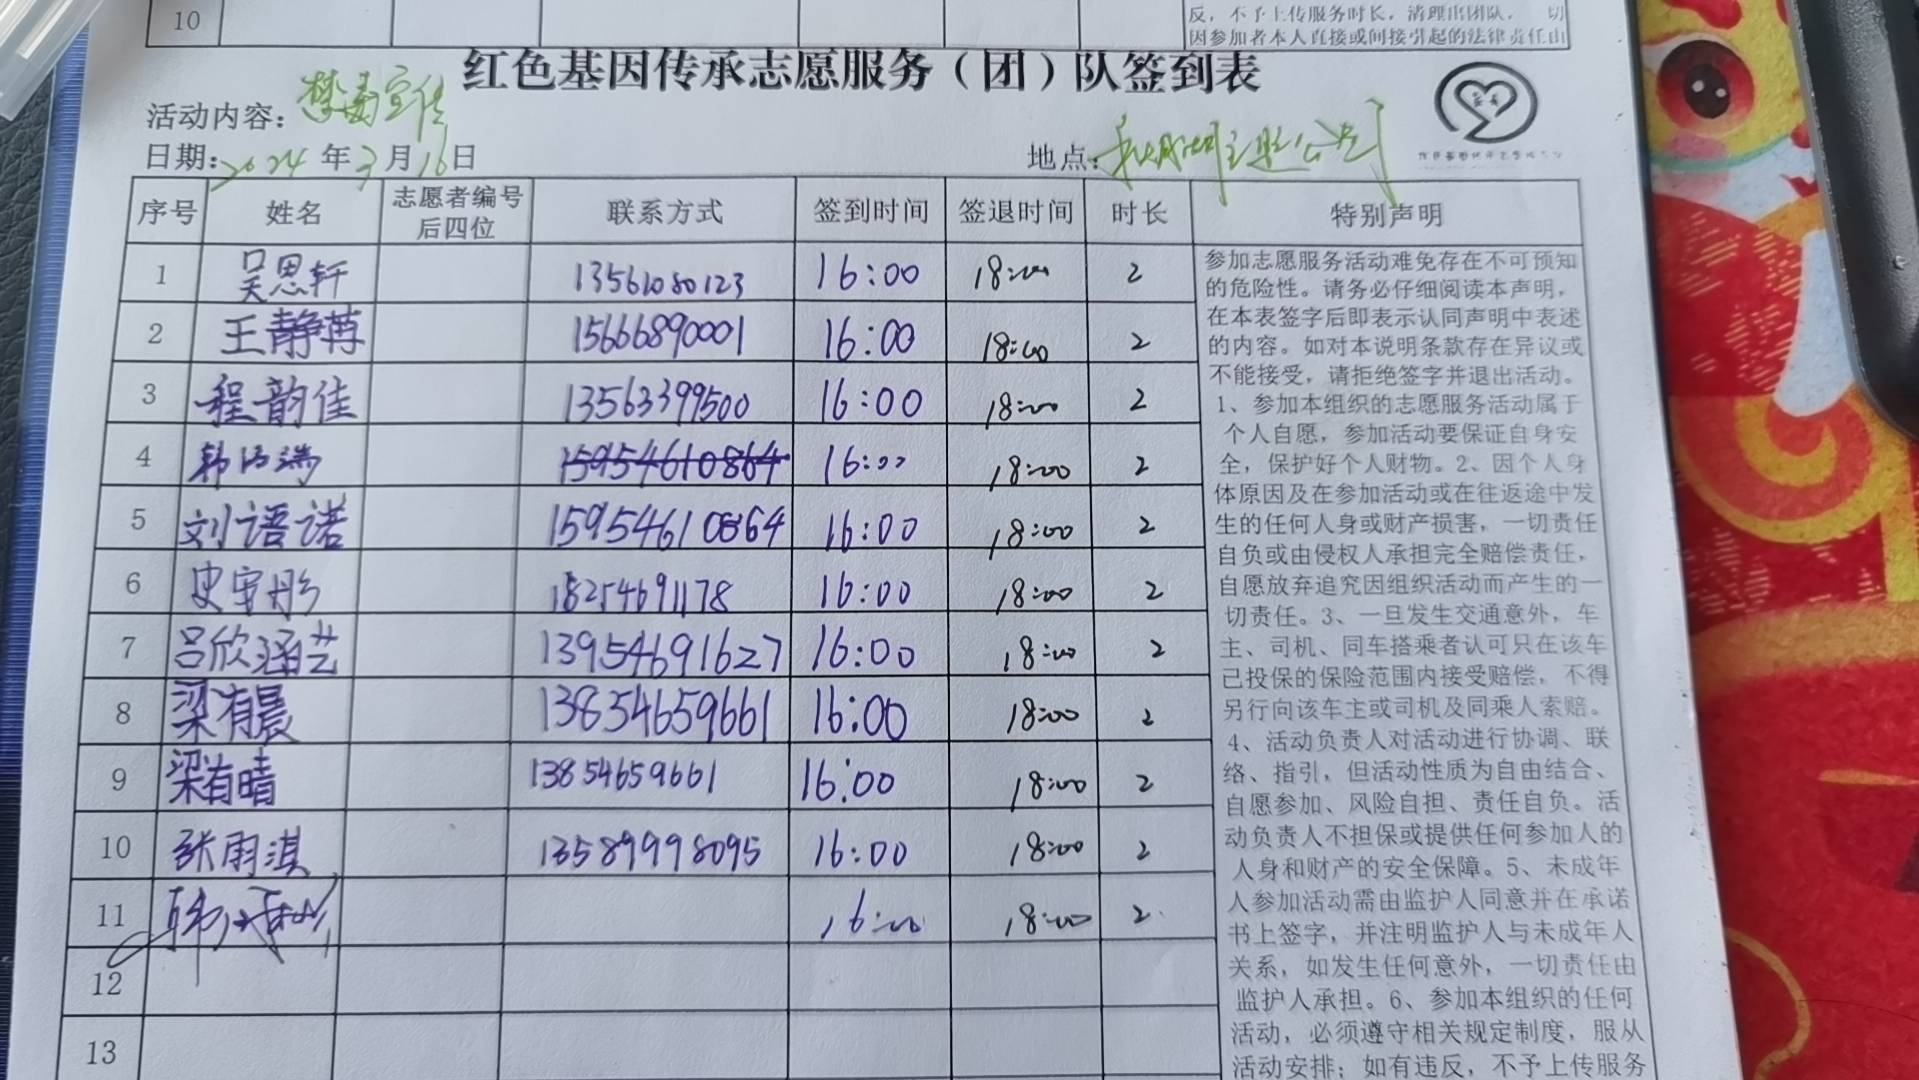 10
反，不予上传服务时长，清理出团队， 切
因参加者本人直接或间接引起的法律责任由
红色基因传承志愿服务（团）队签到表
活动内容：禁毒宣传
日期：2024年3月16日 地点：主题公园
序号 姓名 志愿者编号后四位 联系方式 签到时间 签退时间 时长 特别声明
1 吴思轩 13561080123 16:00 18:00 2
2 王静苒 15666890001 16:00 18:00 2
3 程韵佳 13563399500 16:00 18:00 2
4 15954610864 16:00 18:00 2
5 刘语诺 15954610864 16:00 18:00 2
6 18254691178 16:00 18:00 2
7 吕欣涵艺 13954691627 16:00 18:00 2
8 梁有晨 13854659661 16:00 18:00 2
9 梁有晴 13854659661 16:00 18:00 2
10 张雨淇 13589998095 16:00 18:00 2
11 16:00 18:00 2
12
13
参加志愿服务活动难免存在不可预知
的危险性。请务必仔细阅读本声明，
在本表签字后即表示认同声明中表述
的内容。如对本说明条款存在异议或
不能接受，请拒绝签字并退出活动。
1、参加本组织的志愿服务活动属于
个人自愿，参加活动要保证自身安
全，保护好个人财物。2、因个人身
体原因及在参加活动或在往返途中发
生的任何人身或财产损害，一切责任
自负或由侵权人承担完全赔偿责任，
自愿放弃追究因组织活动而产生的一
切责任。3、一旦发生交通意外，车
主、司机、同车搭乘者认可只在该车
已投保的保险范围内接受赔偿，不得
另行向该车主或司机及同乘人索赔。
4、活动负责人对活动进行协调、联
络、指引，但活动性质为自由结合、
自愿参加、风险自担、责任自负。活
动负责人不担保或提供任何参加人的
人身和财产的安全保障。5、未成年
人参加活动需由监护人同意并在承诺
书上签字，并注明监护人与未成年人
关系，如发生任何意外，一切责任由
监护人承担。6、参加本组织的任何
活动，必须遵守相关规定制度，服从
活动安排；如有违反，不予上传服务